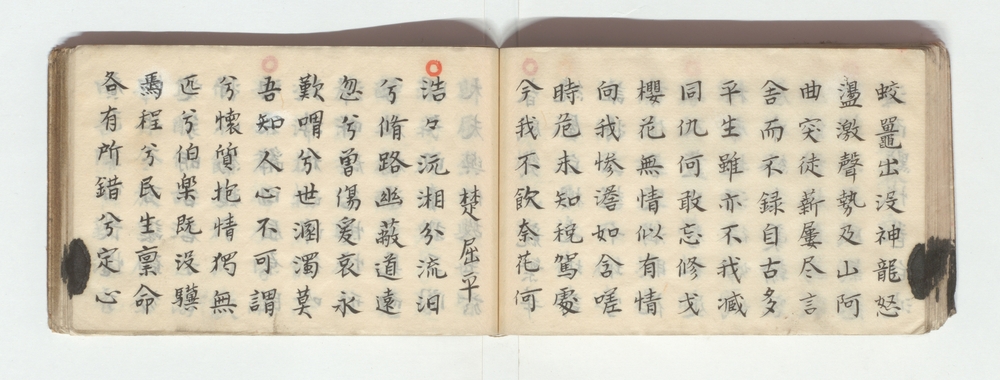 蛟鼉出沒神龍怒
盪激聲勢及山阿
曲突徙薪屢尽言
舎而不録自古多
平生雖亦不我臧
同仇何敢忘修戈
櫻花無情似有情
向我惨澹如含嗟
時危未知稅駕處
今我不飲奈花何
楚屈平
浩々沅湘兮流汩
兮脩路幽蔽道遠
忽兮曽傷爰哀永
歎喟兮世溷濁莫
吾知人心不可謂
兮懷質抱情獨無
匹兮伯樂既沒驥
焉程兮民生禀命
各有所錯兮定心